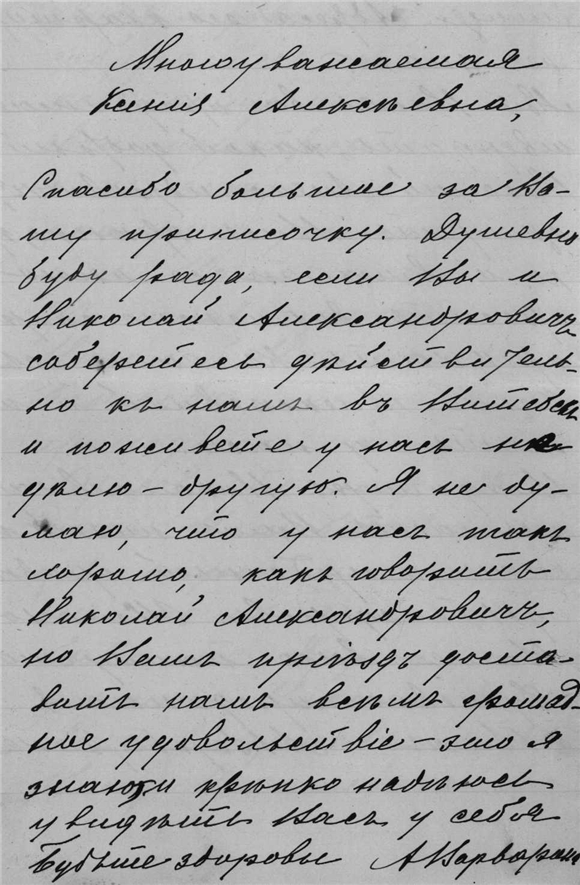 Многоуважаемая
Ксенія Алексѣевна,
Спасибо большое за Ва-
шу приписочку. Душевно
буду рада, если Вы и
Николай Александровичъ
соберетесь дѣйствитель-
но къ намъ въ Витебскъ
и поживете у насъ не
дѣлю – другую. Я не ду-
маю, что у насъ такъ
хорошо, какъ говоритъ
Николай Александровичъ,
но Вашъ пріѣздъ доста-
витъ намъ всѣмъ громад-
ное удовольствіе – это я
знаю и крѣпко надѣюсь
увидѣть Васъ у себя
Будьте здоровы